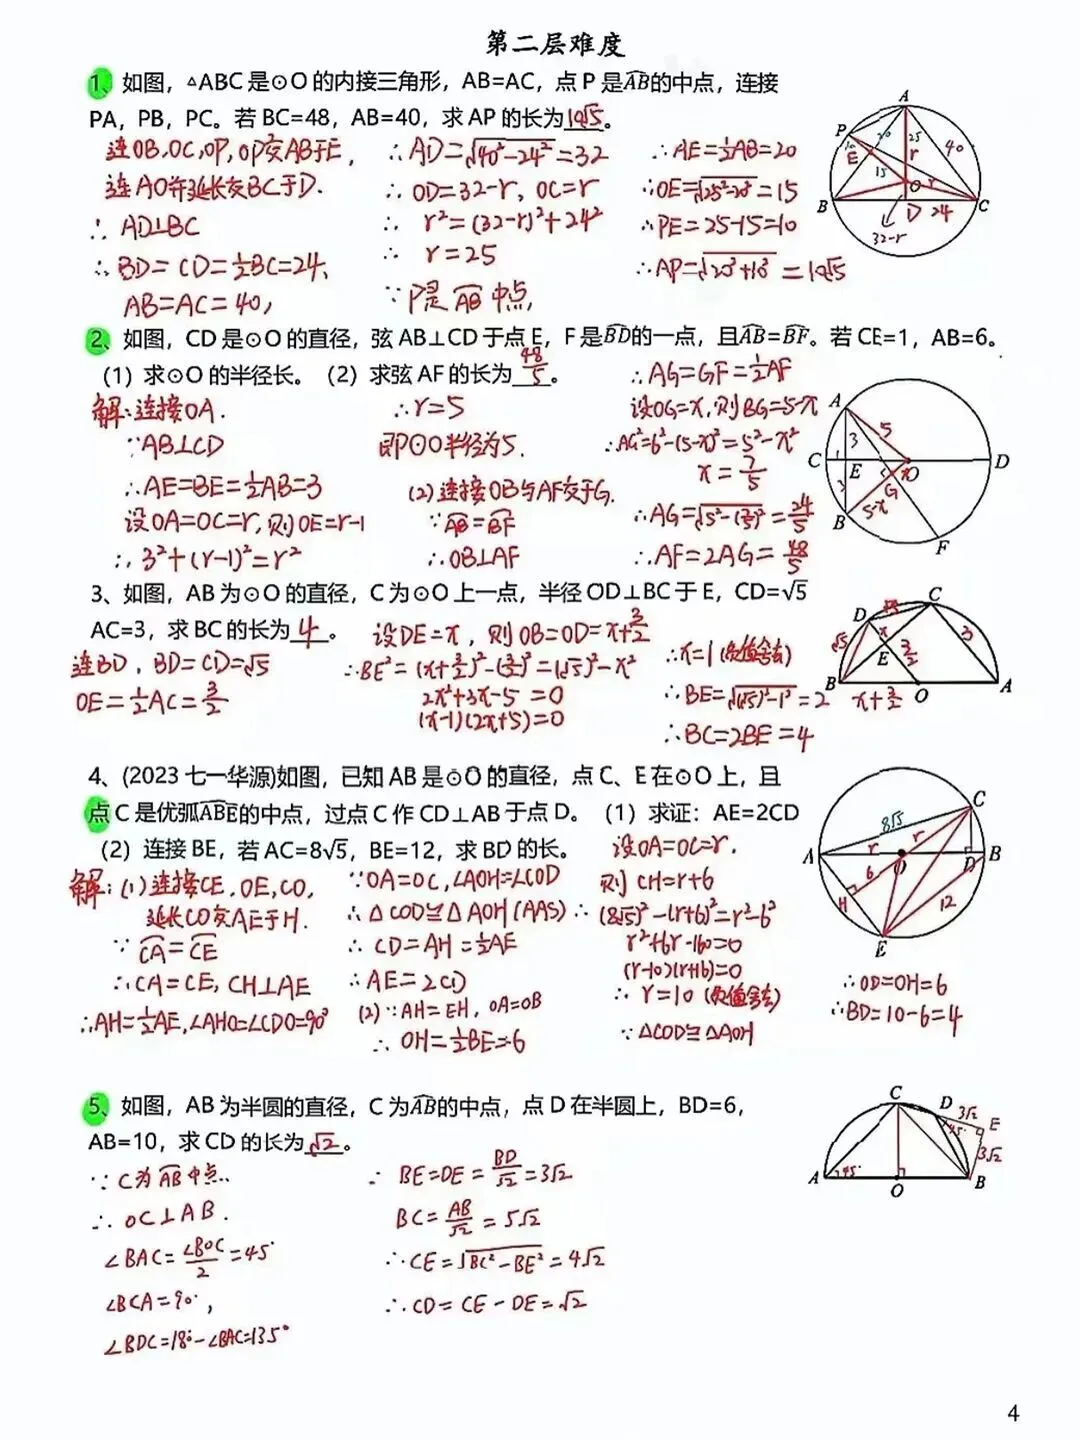 第二层难度
1、如图，△ABC 是⊙O 的内接三角形，AB=AC，点 P 是AB的中点，连接
PA，PB，PC。若 BC=48，AB=40，求 AP 的长为10√5。
连OB,OC,OP,OP交AB于E,
连AO并延长交BC于D.
∴ AD⊥BC
∴ BD=CD=½BC=24,
AB=AC=40,
∴AD=√(40²-24²)=32
∴ OD=32-r, OC=r
∴ r²=(32-r)²+24²
∴ r=25
∵ P是AB中点,
∴AE=½AB=20
∴OE=√(25²-20²)=15
∴PE=25-15=10
∴AP=√(20²+10²)=10√5
A
P
E
B
O
D
C
10
20
25
40
15
r
r
24
32-r
2、如图，CD 是⊙O 的直径，弦 AB⊥CD 于点 E，F 是BD的一点，且AB=BF。若 CE=1，AB=6。
（1）求⊙O 的半径长。（2）求弦 AF 的长为48/5。
解:连接OA.
∵AB⊥CD
∴AE=BE=½AB=3
设OA=OC=r,则OE=r-1
∴3²+(r-1)²=r²
∴r=5
即⊙O半径为5.
(2)连接OB与AF交于G.
∵AB=BF
∴OB⊥AF
∴AG=GF=½AF
设OG=x,则BG=5-x
∴AG²=6²-(5-x)²=5²-x²
x=7/5
∴AG=√(5²-(7/5)²)=24/5
∴AF=2AG=48/5
A
5
3
C
1
E
x
O
D
3
G
B
5-x
F
3、如图，AB 为⊙O 的直径，C 为⊙O 上一点，半径 OD⊥BC 于 E，CD=√5
AC=3，求 BC 的长为4。
连BD, BD=CD=√5
OE=½AC=3/2
设DE=x, 则OB=OD=x+3/2
∴BE²=(x+3/2)²-(3/2)²=(√5)²-x²
2x²+3x-5=0
(x-1)(2x+5)=0
∴x=1(负值舍去)
∴BE=√((√5)²-1²)=2
∴BC=2BE=4
C
D
√5
√5
x
E
3/2
3
B
x+3/2
O
A
4、(2023 七一华源)如图，已知 AB 是⊙O 的直径，点 C、E 在⊙O 上，且
点 C 是优弧ABE的中点，过点 C 作 CD⊥AB 于点 D。（1）求证：AE=2CD
（2）连接 BE，若 AC=8√5，BE=12，求 BD 的长。
解:(1)连接CE,OE,CO,
延长CO交AE于H.
∵ CA=CE
∴CA=CE,CH⊥AE
∴AH=½AE,∠AHO=∠CDO=90°
∵OA=OC,∠AOH=∠COD
∴△COD≌△AOH(AAS)
∴ CD=AH=½AE
∴AE=2CD
(2)∵AH=EH, OA=OB
∴ OH=½BE=6
设OA=OC=r,
则CH=r+6
∴(8√5)²-(r+6)²=r²-6²
r²+6r-160=0
(r-10)(r+16)=0
∴ r=10(负值舍去)
∵△COD≌△AOH
∴OD=OH=6
∴BD=10-6=4
C
8√5
r
A
r
O
D
B
6
H
12
E
5、如图，AB 为半圆的直径，C 为AB的中点，点 D 在半圆上，BD=6，
AB=10，求 CD 的长为√2。
∵ C为AB中点.
∴ OC⊥AB.
∠BAC=∠BOC/2=45°
∠BCA=90°,
∠BDC=180°-∠BAC=135°
∴ BE=DE=BD/√2=3√2
BC=AB/√2=5√2
∴CE=√(BC²-BE²)=4√2
∴CD=CE-DE=√2
C
D
3√2
E
45°
3√2
A
45°
O
B
4